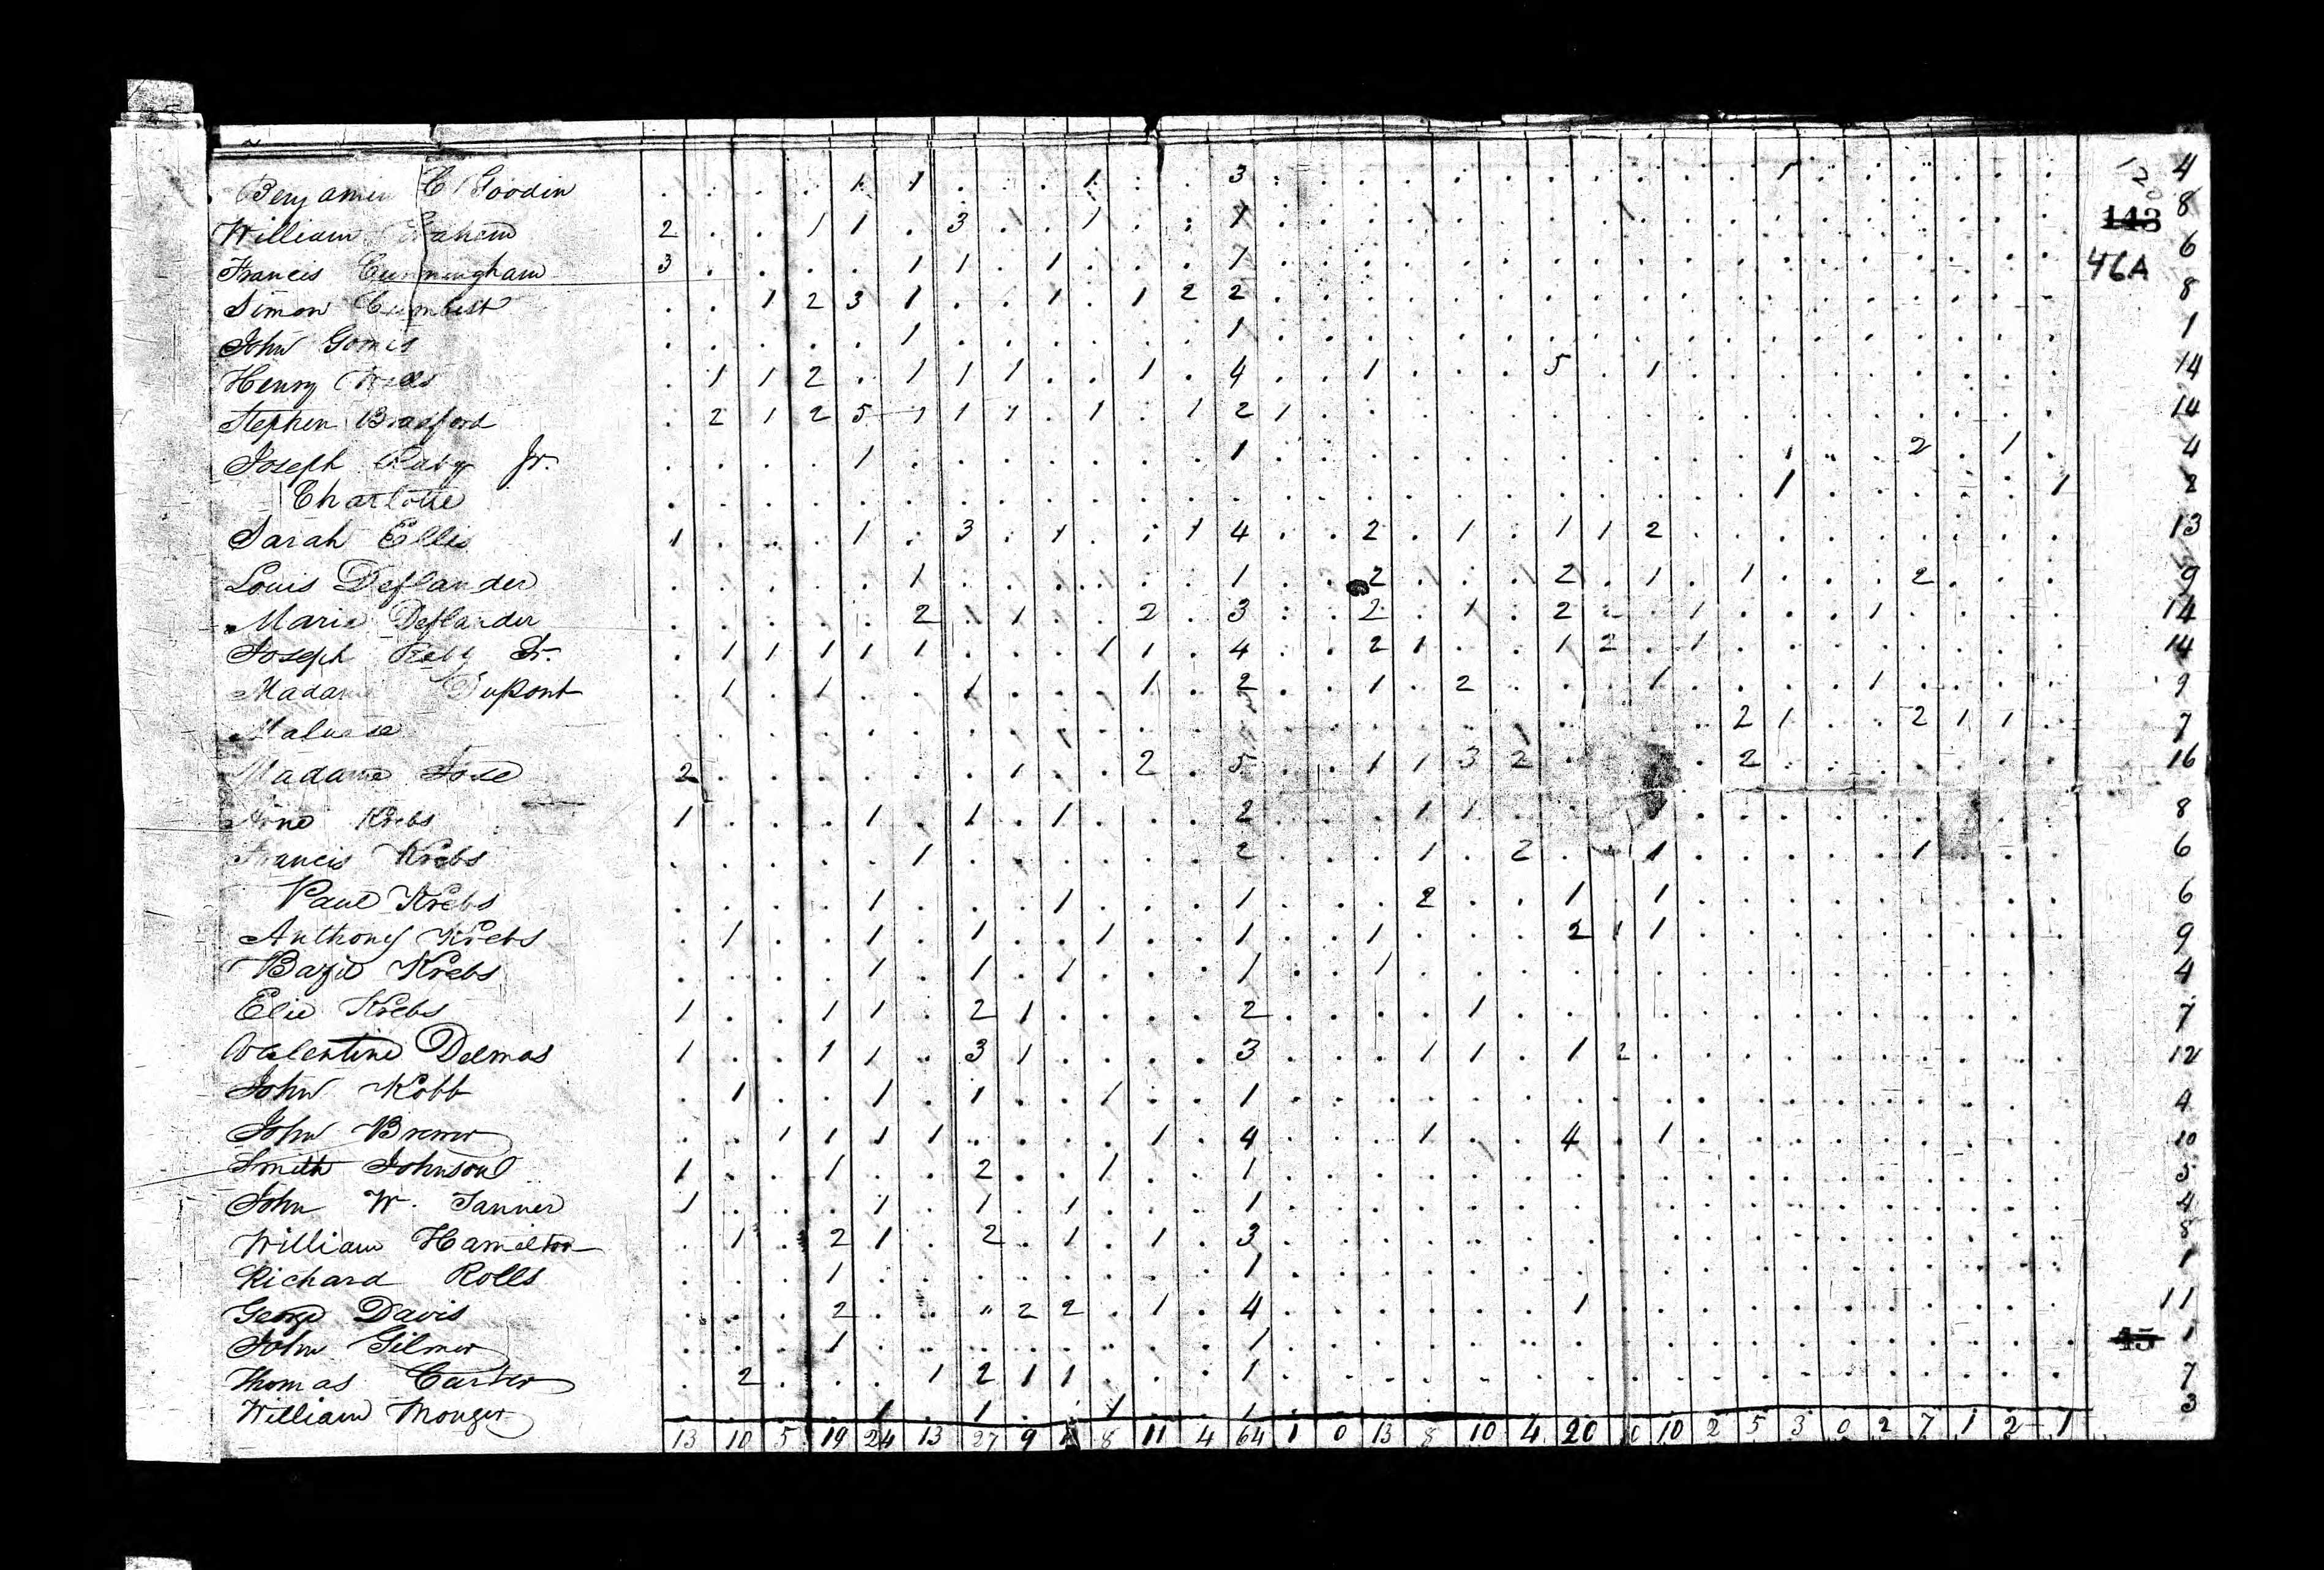 Benjamin C Goodin . . . . 1 1 . . . 1 . . 3 . . . . . . . . . . . 1 . . . . . . 4
William Graham 2 . . 1 1 . 3 . . 1 . . 1 . . . . . . . . . . . . . . . . . . 8
143
Francis Cunningham 3 . . . . 1 1 . 1 . . . 1 . . . . . . . . . . . . . . . . . . 6
46A
Simon Cumbest . . 1 2 3 1 . . 1 . 1 2 2 . . . . . . . . . . . . . . . . . . 8
John Gomes . . . . . 1 . . . . . . 1 . . . . . . . . . . . . . . . . . . 1
Henry Wells . 1 1 2 . 1 1 1 . . 1 . 4 . . 1 . . . 5 . 1 . . . . . . . . . 14
Stephen Bradford . 2 1 2 5 1 1 1 . 1 . 1 2 1 . . . . . . . . . . . . . . . . . 14
Joseph Raby Jr. . . . . 1 . . . . . . . 1 . . . . . . . . . . . 1 . . 2 . 1 . 4
Charlotte . . . . . . . . . . . . . . . . . . . . . . . . 1 . . . . . 1 2
Sarah Ellis 1 . . . 1 . 3 . 1 . . 1 4 . . 2 . 1 . 1 1 2 . . . . . . . . . 13
Louis Deflander . . . . . 1 . . . . . . 1 . . 2 . . . 2 . 1 . 1 . . . 2 . . . 9
Maria Deflander . . . . . 2 . 1 . . 2 . 3 . . 2 . 1 . 2 2 . 1 . . . 1 . . . . 14
Joseph Raby Sr. . 1 1 1 1 1 . . . 1 1 . 4 . . 2 1 . . 1 2 . 1 . . . . . . . . 14
Madame Dupont . 1 . 1 . . 1 . . . 1 . 2 . . 1 . 2 . . . 1 . . . . 1 . . . . 9
. . . . . . . . . . . . . . . . . . . . . . . 2 1 . . 2 1 1 . 7
Madame 2 . . . . . . 1 . . 2 . 5 . . 1 1 3 2 . . . . 2 . . . . . . . 16
Krebs 1 . . . 1 . 1 . 1 . . . 2 . . . 1 1 . . . 1 . . . . . . . . . 8
Francis Krebs . . . . . 1 . . . . . . 2 . . . 1 . 2 . . 1 . . . . . 1 . . . 6
Paul Krebs . . . . 1 . . . 1 . . . 1 . . . 2 . . 1 . 1 . . . . . . . . . 6
Anthony Krebs . 1 . . 1 . 1 . . 1 . . 1 . . 1 . . . 2 1 1 . . . . . . . . . 9
Bazil Krebs . . . . 1 . 1 . 1 . . . 1 . . 1 . . . . . . . . . . . . . . . 4
Elie Krebs 1 . . 1 1 . 2 1 . . . . 2 . . . . 1 . . . . . . . . . . . . . 7
Valentine Delmas 1 . . 1 1 . 3 1 . . . . 3 . . . 1 1 . 1 2 . . . . . . . . . . 12
John Kobb . 1 . . 1 . 1 . . 1 . . 1 . . . . . . . . . . . . . . . . . . 4
John Brewer . . 1 1 1 1 . . . . 1 . 4 . . . 1 . . 4 . 1 . . . . . . . . . 10
Smith Johnson 1 . . 1 . . 2 . . 1 . . 1 . . . . . . . . . . . . . . . . . . 5
John W. Tanner 1 . . . 1 . 1 . 1 . . . 1 . . . . . . . . . . . . . . . . . . 4
William Hamelton . 1 . 2 1 . 2 . 1 . 1 . 3 . . . . . . . . . . . . . . . . . . 8
Richard Rolls . . . 1 . . . . . . . . 1 . . . . . . . . . . . . . . . . . . 1
George Davis . . . 2 . . " 2 2 . 1 . 4 . . . . . . 1 . . . . . . . . . . . 11
John Gilmer . . . 1 . . . . . . . . 1 . . . . . . . . . . . . . . . . . . 45 1
Thomas Carter . 2 . . . 1 2 1 1 . . . 1 . . . . . . . . . . . . . . . . . . 7
William Monger . . . . 1 . 1 . . 1 . . 1 . . . . . . . . . . . . . . . . . . 3
13 10 5 19 24 13 27 9 8 11 4 64 1 0 13 8 10 4 20 10 2 5 3 0 2 7 1 2 1